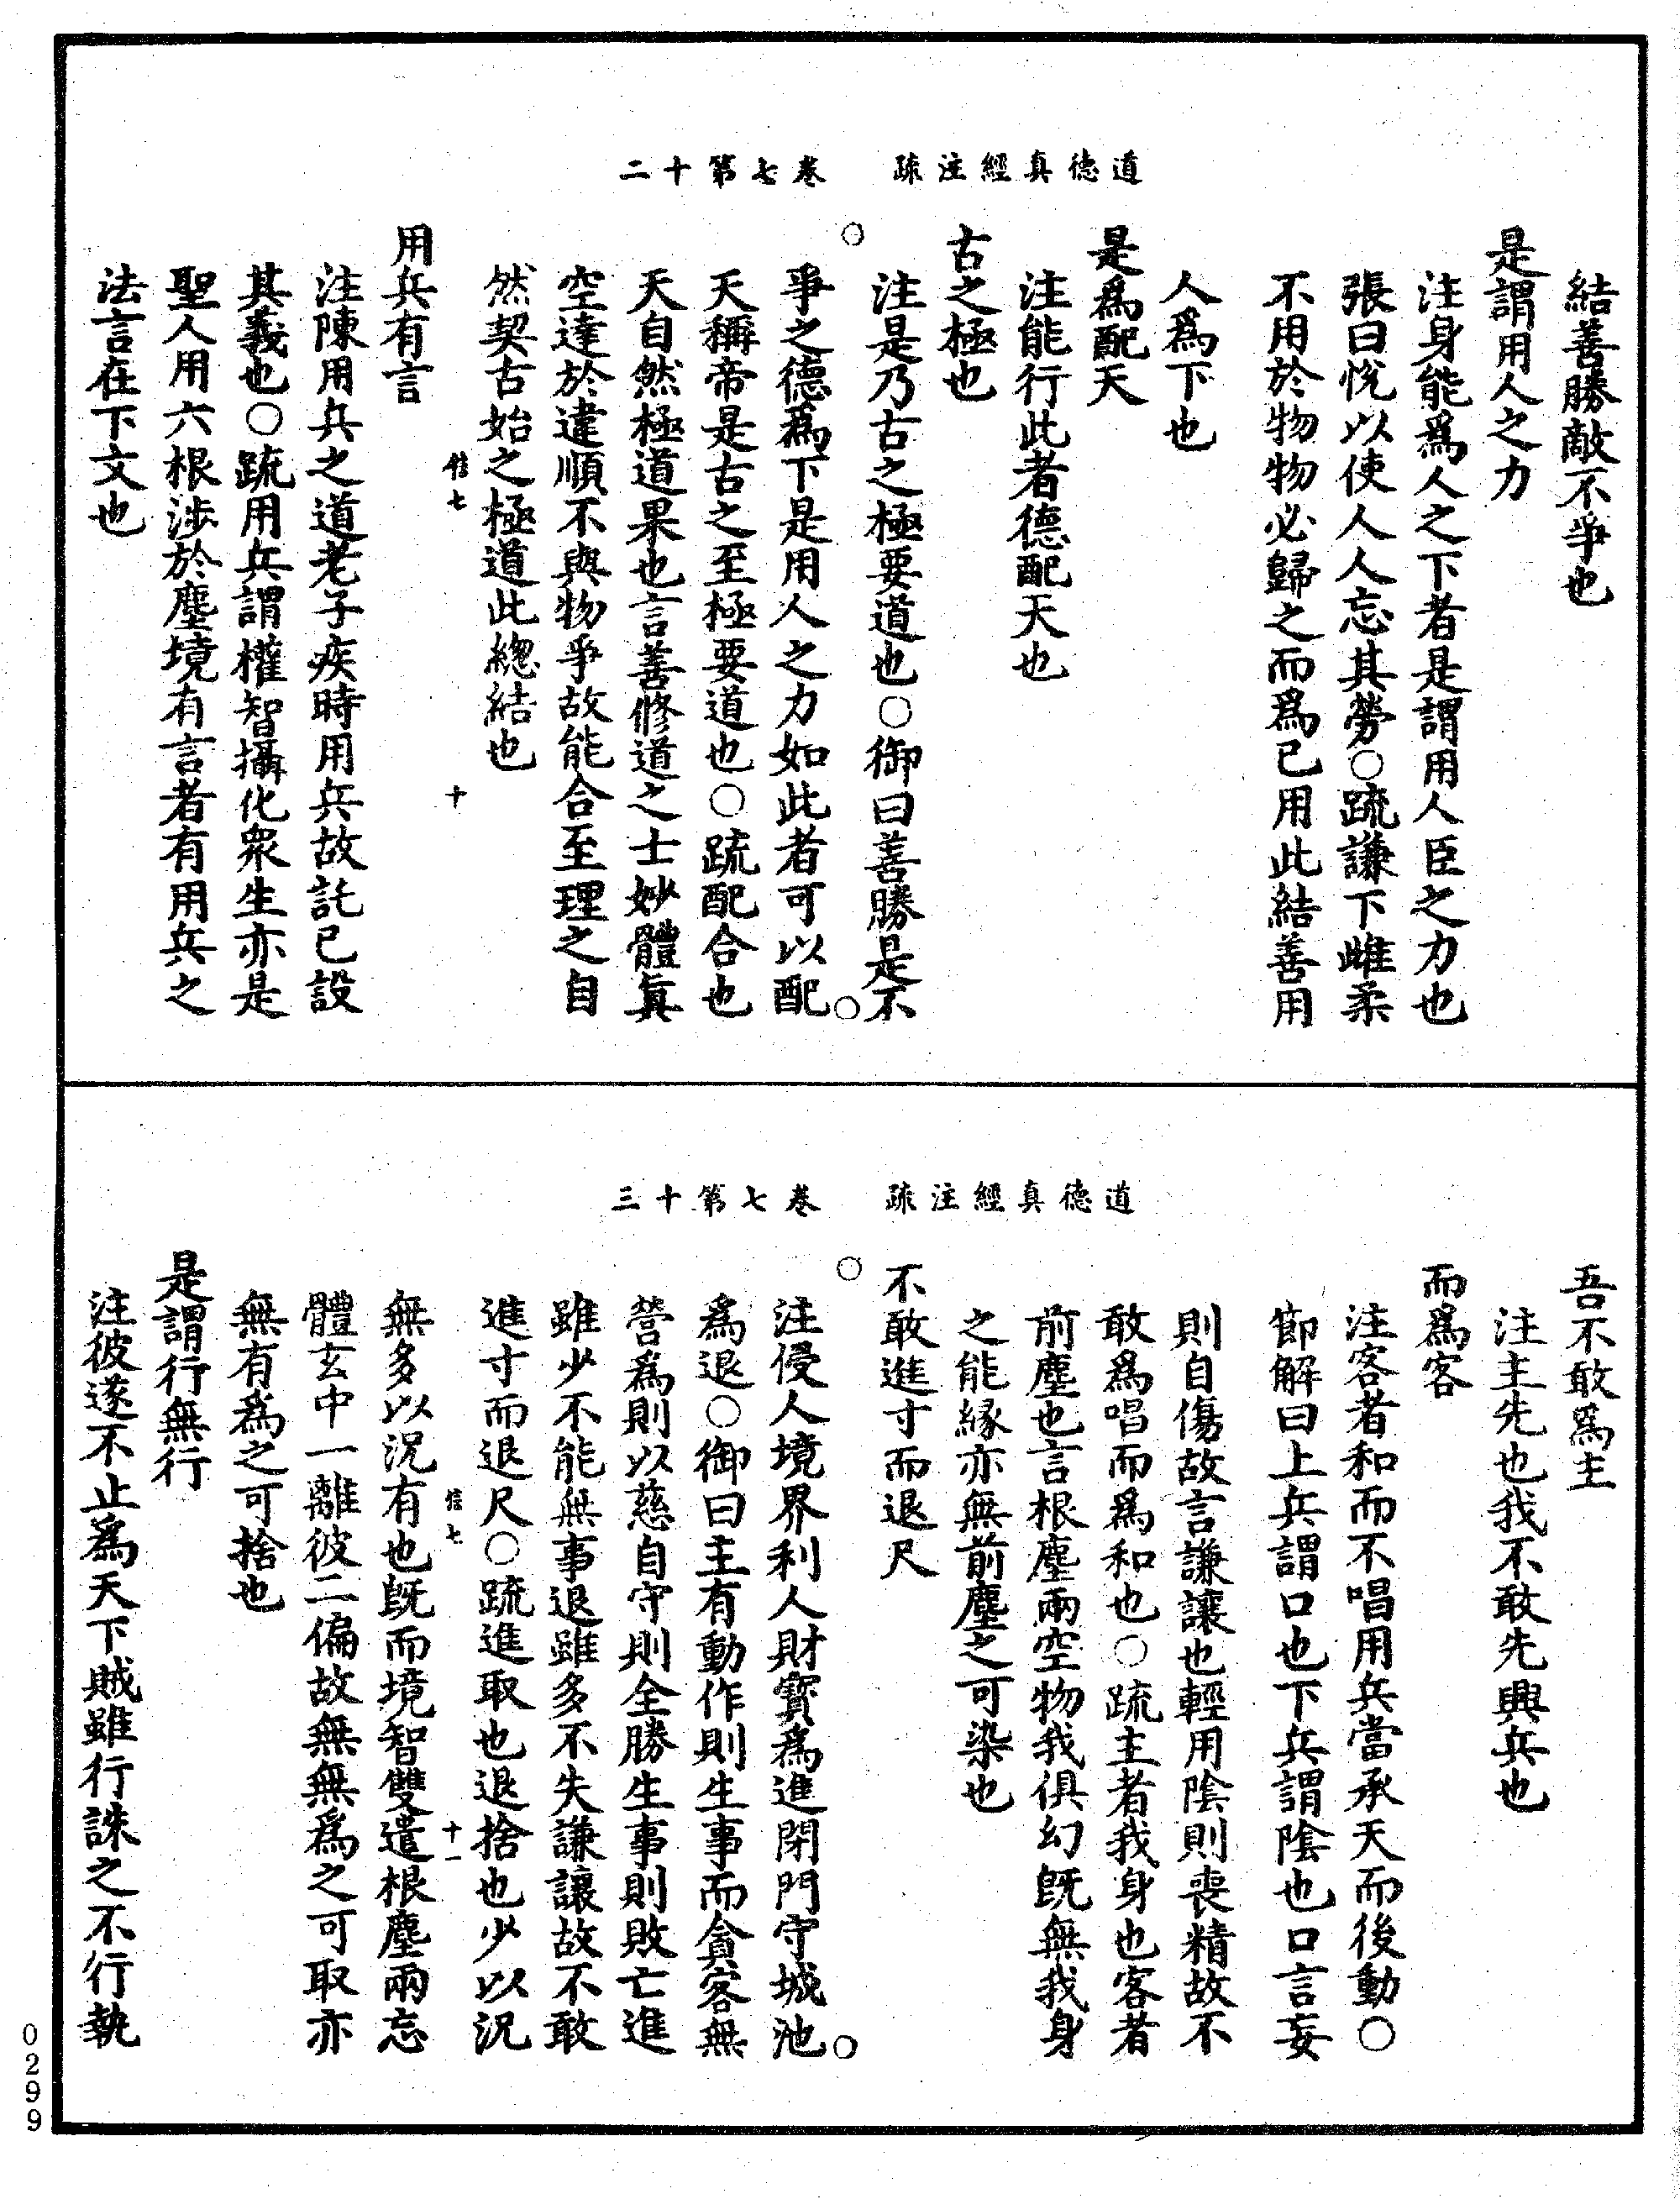 道德真經注疏　卷七第十二
結善勝敵不爭也
是謂用人之力
注身能爲人之下者是謂用人臣之力也
張曰悅以使人人忘其勞○䟽謙下雌柔
不用於物物必歸之而爲已用此結善用
人爲下也
是爲配天
注能行此者德配天也
古之極也
注是乃古之極要道也○御曰善勝是不
爭之德爲下是用人之力如此者可以配
天稱帝是古之至極要道也○䟽配合也
天自然極道果也言善修道之士妙體真
空達於違順不與物爭故能合至理之自
然契古始之極道此總結也
信七　十
用兵有言
注陳用兵之道老子疾時用兵故託已設
其義也○䟽用兵謂權智攝化衆生亦是
聖人用六根涉於塵境有言者有用兵之
法言在下文也
道德真經注疏　卷七第十三
吾不敢爲主
注主先也我不敢先興兵也
而爲客
注客者和而不唱用兵當承天而後動○
節解曰上兵謂口也下兵謂陰也口言妄
則自傷故言謙讓也輕用陰則喪精故不
敢爲唱而爲和也○䟽主者我身也客者
前塵也言根塵兩空物我俱幻既無我身
之能緣亦無前塵之可染也
不敢進寸而退尺
注侵人境界利人財寶爲進閉門守城池
爲退○御曰主有動作則生事而貪客無
營爲則以慈自守則全勝生事則敗亡進
雖少不能無事退雖多不失謙讓故不敢
進寸而退尺○䟽進取也退捨也少以況
信七　十一
無多以況有也既而境智雙遣根塵兩忘
體玄中一離彼二偏故無無爲之可取亦
無有爲之可捨也
是謂行無行
注彼遂不止爲天下賊雖行誅之不行執
0299